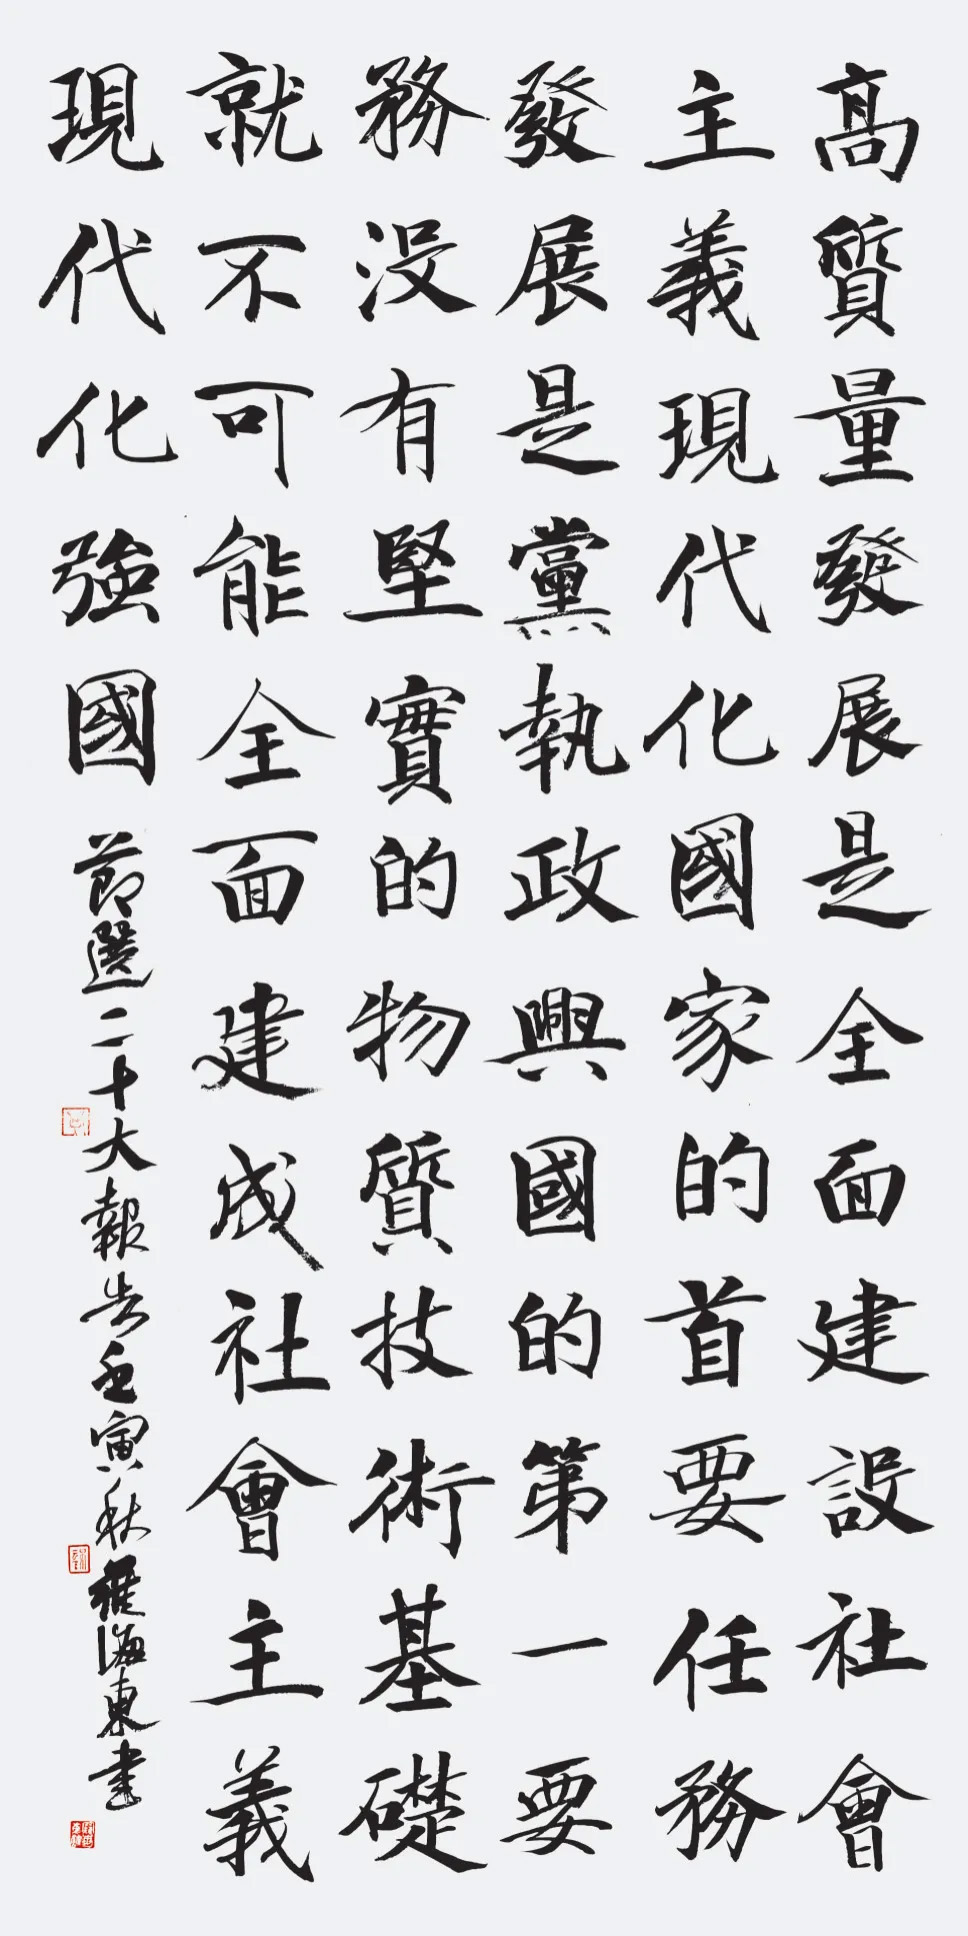 高質量發展是全面建設社會
主義現代化國家的首要任務
發展是黨執政興國的第一要
務没有堅實的物質技術基礎
就不可能全面建成社會主義
現代化強國
節選二十大報告壬寅秋羅海東書